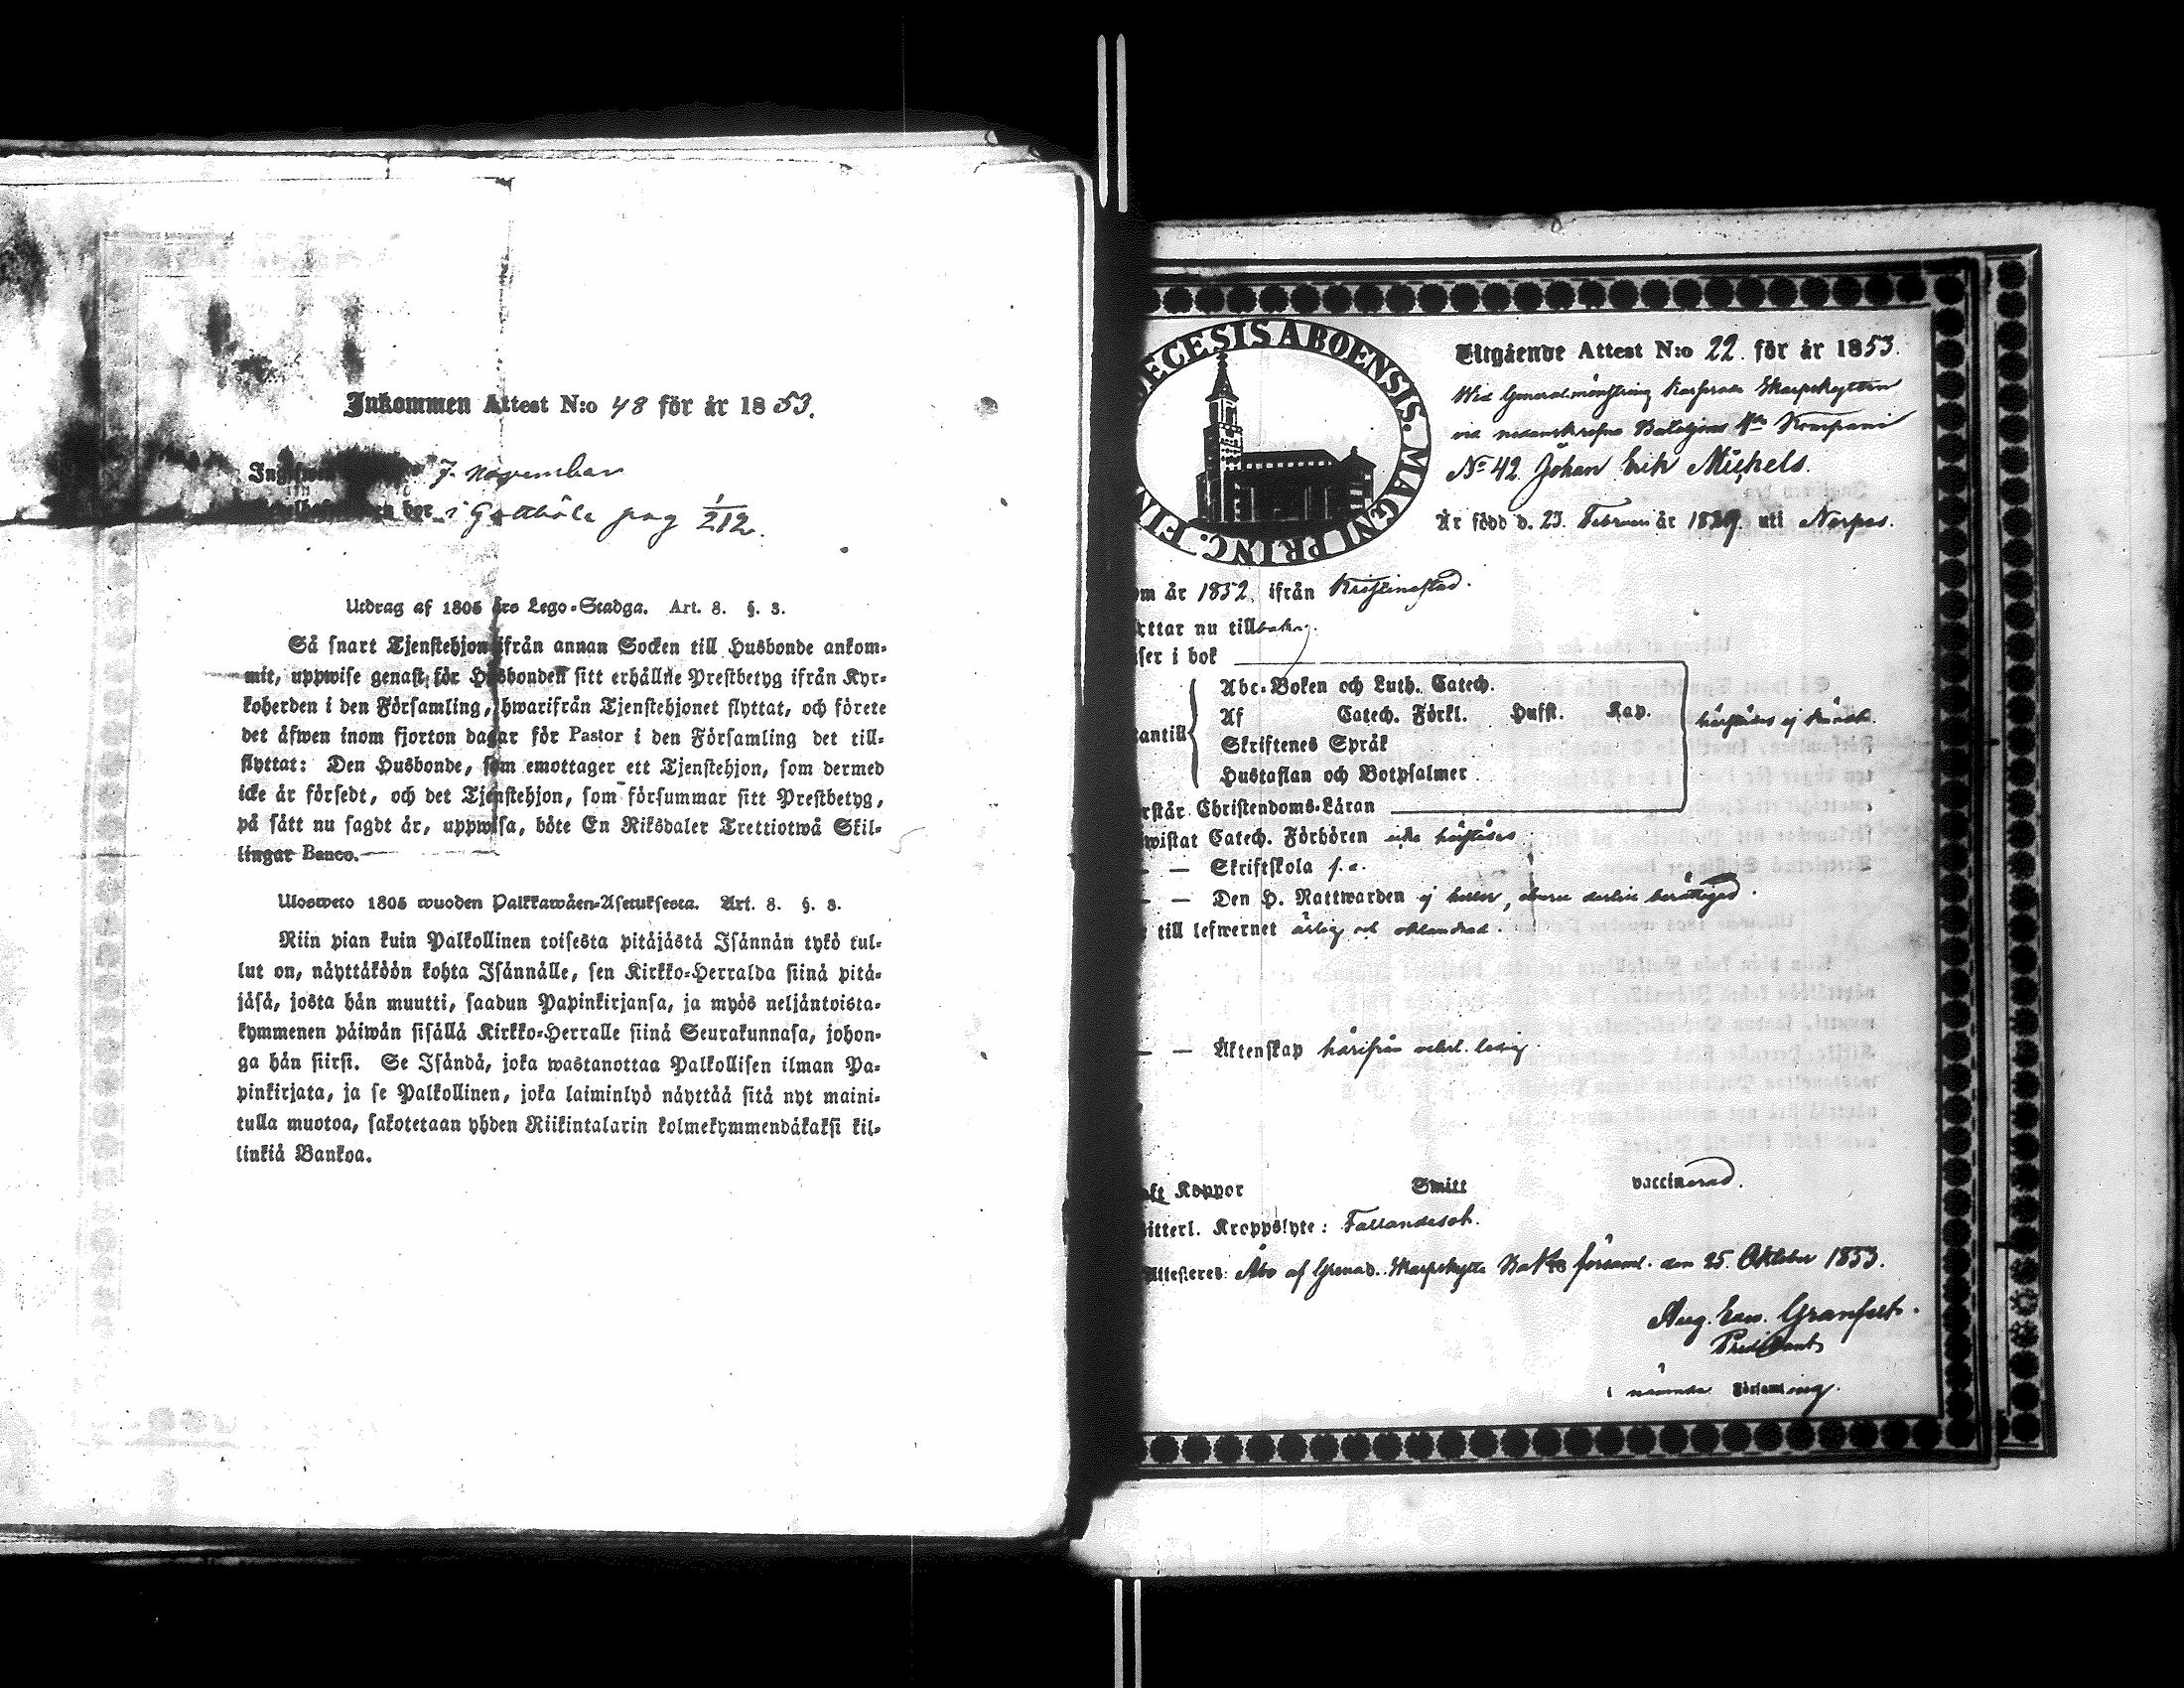 Inkommen Attest N:o 48 för år 1853.
7. November
bor i Gottböle pag 1/212.
Utdrag af 1805 års Lego-Stadga. Art. 8. §. 3.
Så snart Tjenstehjon ifrån annan Socken till Husbonde ankom-
mit, uppwise genast för Husbonden sitt erhållne Prestbetyg ifrån Kyr-
koherden i den Församling, hwarifrån Tjenstehjonet flyttat, och förete
det äfwen inom fjorton dagar för Pastor i den Församling det till-
flyttat: Den Husbonde, som emottager ett Tjenstehjon, som dermed
icke är försedt, och det Tjenstehjon, som försummar sitt Prestbetyg,
på sätt nu sagdt är, uppwisa, böte En Riksdaler Trettiotwå Skil-
lingar Banco.
Ulosweto 1805 wuoden Palkkawäen-Asetuksesta. Art. 8. §. 3.
Niin pian kuin Palkollinen toisesta pitäjästä Isännän tykö tul-
lut on, näyttäköön kohta Isännälle, sen Kirkko-Herralda siinä pitä-
jäsä, josta hän muutti, saadun Papinkirjansa, ja myös neljäntoista-
kymmenen päiwän sisällä Kirkko-Herralle siinä Seurakunnasa, johon-
ga hän siirsi. Se Isändä, joka wastanottaa Palkollisen ilman Pa-
pinkirjata, ja se Palkollinen, joka laiminlyö näyttää sitä nyt maini-
tulla muotoa, sakotetaan yhden Riikintalarin kolmekymmendäkaksi kil-
linkiä Bankoa.
DIOECESIS ABOENSIS. MAGNI PRINC. FIN
Utgående Attest N:o 22. för år 1853.
Wid Generalmönstring Skarpskytten
vid Kompani
No 42 Johan Erik Michels.
Är född d. 23. Februari år 1829. uti Nerpes.
om år 1852. ifrån Kristinestad.
ttar nu tillbaka.
ser i bok
Abc-Boken och Luth. Catech.
Af Catech. Förkl. Husst. Kap.
antill
Skriftenes Språk
Hustaflan och Botpsalmer
rstår Christendoms-Läran
wistat Catech. Förhören icke
— Skriftskola
— — Den H. Nattwarden ej heller,
till lefwernet ärlig och
— — Äktenskap härifrån ledig.
Koppor Smitt vaccinerad.
itterl. Kroppslyte: Fallandesot.
Attesteras: Åbo af Grenad. Skarpskytte församl. den 25. Oktober 1853.
Aug. Edv. Granfelt.
Predikant
i nämnda Församling.